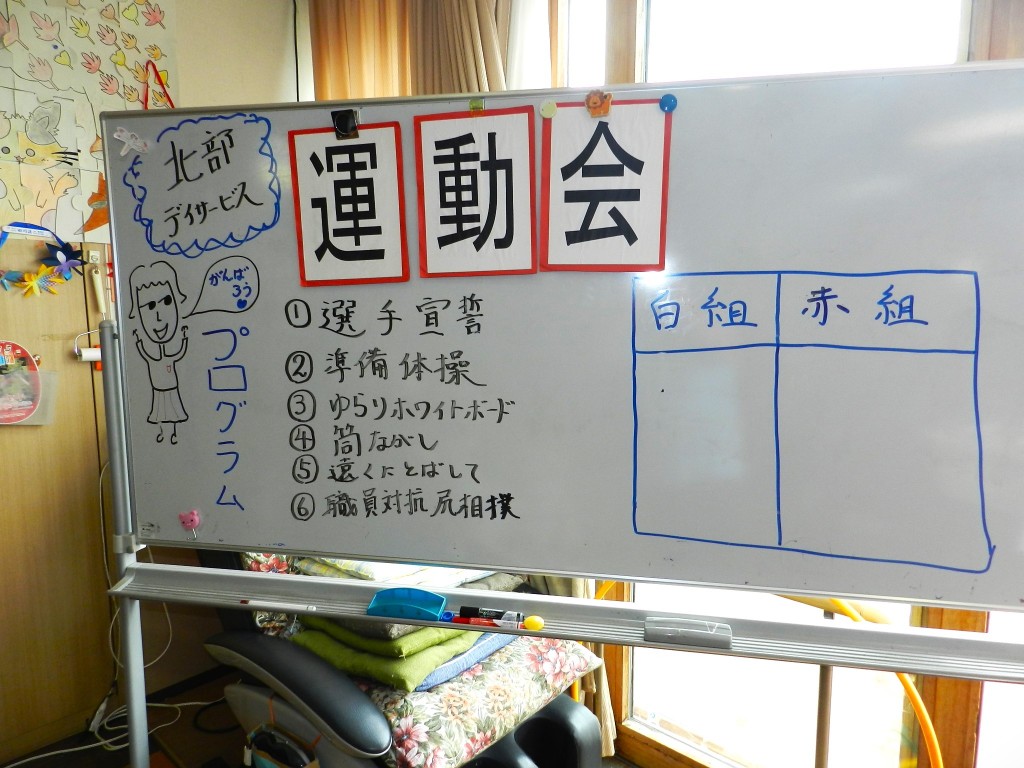 北部
デイサービス
運動会
がんば
ろう
プログラム
① 選手宣誓
② 準備体操
③ ゆらりホワイトボード
④ 筒ながし
⑤ 遠くにとばして
⑥ 職員対抗尻相撲
白組 赤組